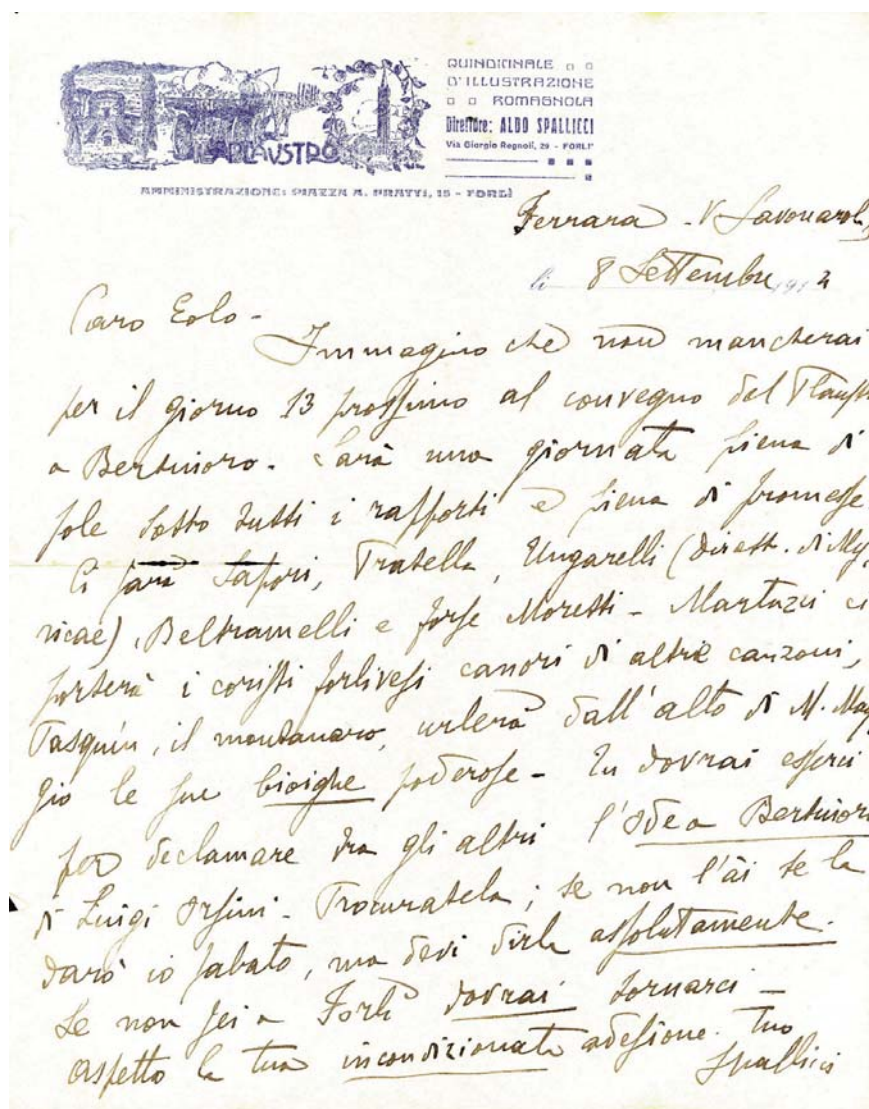 IL PLAUSTRO
QUINDICINALE
D'ILLUSTRAZIONE
ROMAGNOLA
Direttore: ALDO SPALLICCI
Via Giorgio Regnoli, 29 - FORLI'
AMMINISTRAZIONE: PIAZZA A. FRATTI, 15 - FORLÌ
Ferrara - V Savonarola
li 8 Settembre 191
Caro Eolo -
Immagino che non mancherai
per il giorno 13 prossimo al convegno del Plaustro
a Bertinoro. Sarà una giornata piena di
sole sotto tutti i rapporti e piena di promesse.
Ci sarà Sapori, Pratella, Ungarelli (dirett. di My
ricae), Beltramelli e forse Moretti - Martuzzi ci
porterà i coristi forlivesi canori di altre canzoni,
Pasquin, il montanaro, urlerà dall'alto di M. Mag
gio le sue bioighe poderose - Tu dovrai esserci
per declamare tra gli altri l'Ode a Bertinoro
di Luigi Orsini - Procuratela; se non l'ài te la
darò io sabato, ma devi dirla assolutamente.
Se non sei a Forlì dovrai tornarci -
Aspetto la tua incondizionata adesione. Tuo
Spallicci